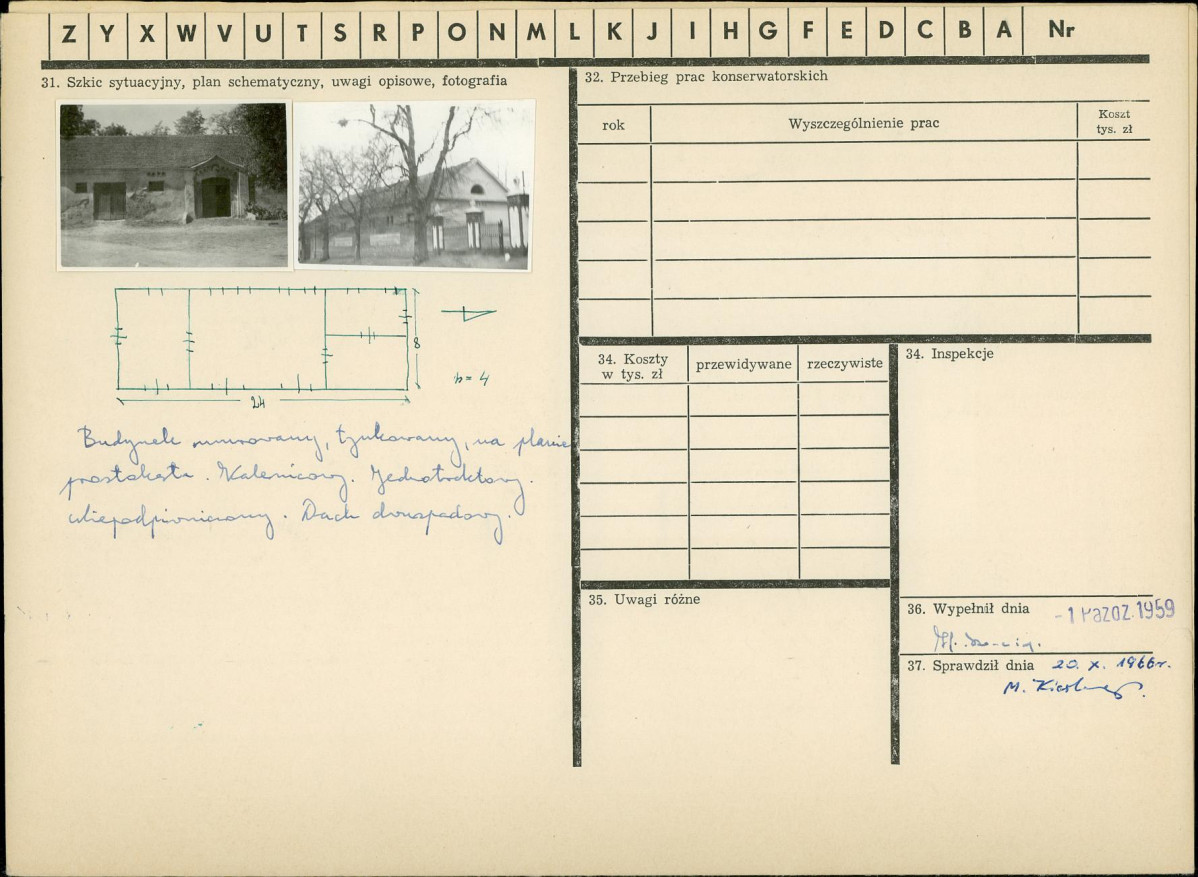 Z Y X W V U T S R P O N M L K J I H G F E D C B A Nr
31. Szkic sytuacyjny, plan schematyczny, uwagi opisowe, fotografia
8
h = 4
24
Budynek murowany, tynkowany, na planie
prostokąta. Kalenicowy. Jednotraktowy.
Niepodpiwniczony. Dach dwuspadowy.
32. Przebieg prac konserwatorskich
rok Wyszczególnienie prac Koszt
tys. zł
34. Koszty
w tys. zł przewidywane rzeczywiste
34. Inspekcje
35. Uwagi różne
36. Wypełnił dnia -1 PAŹDZ. 1959
37. Sprawdził dnia 20. X. 1966r.
M.